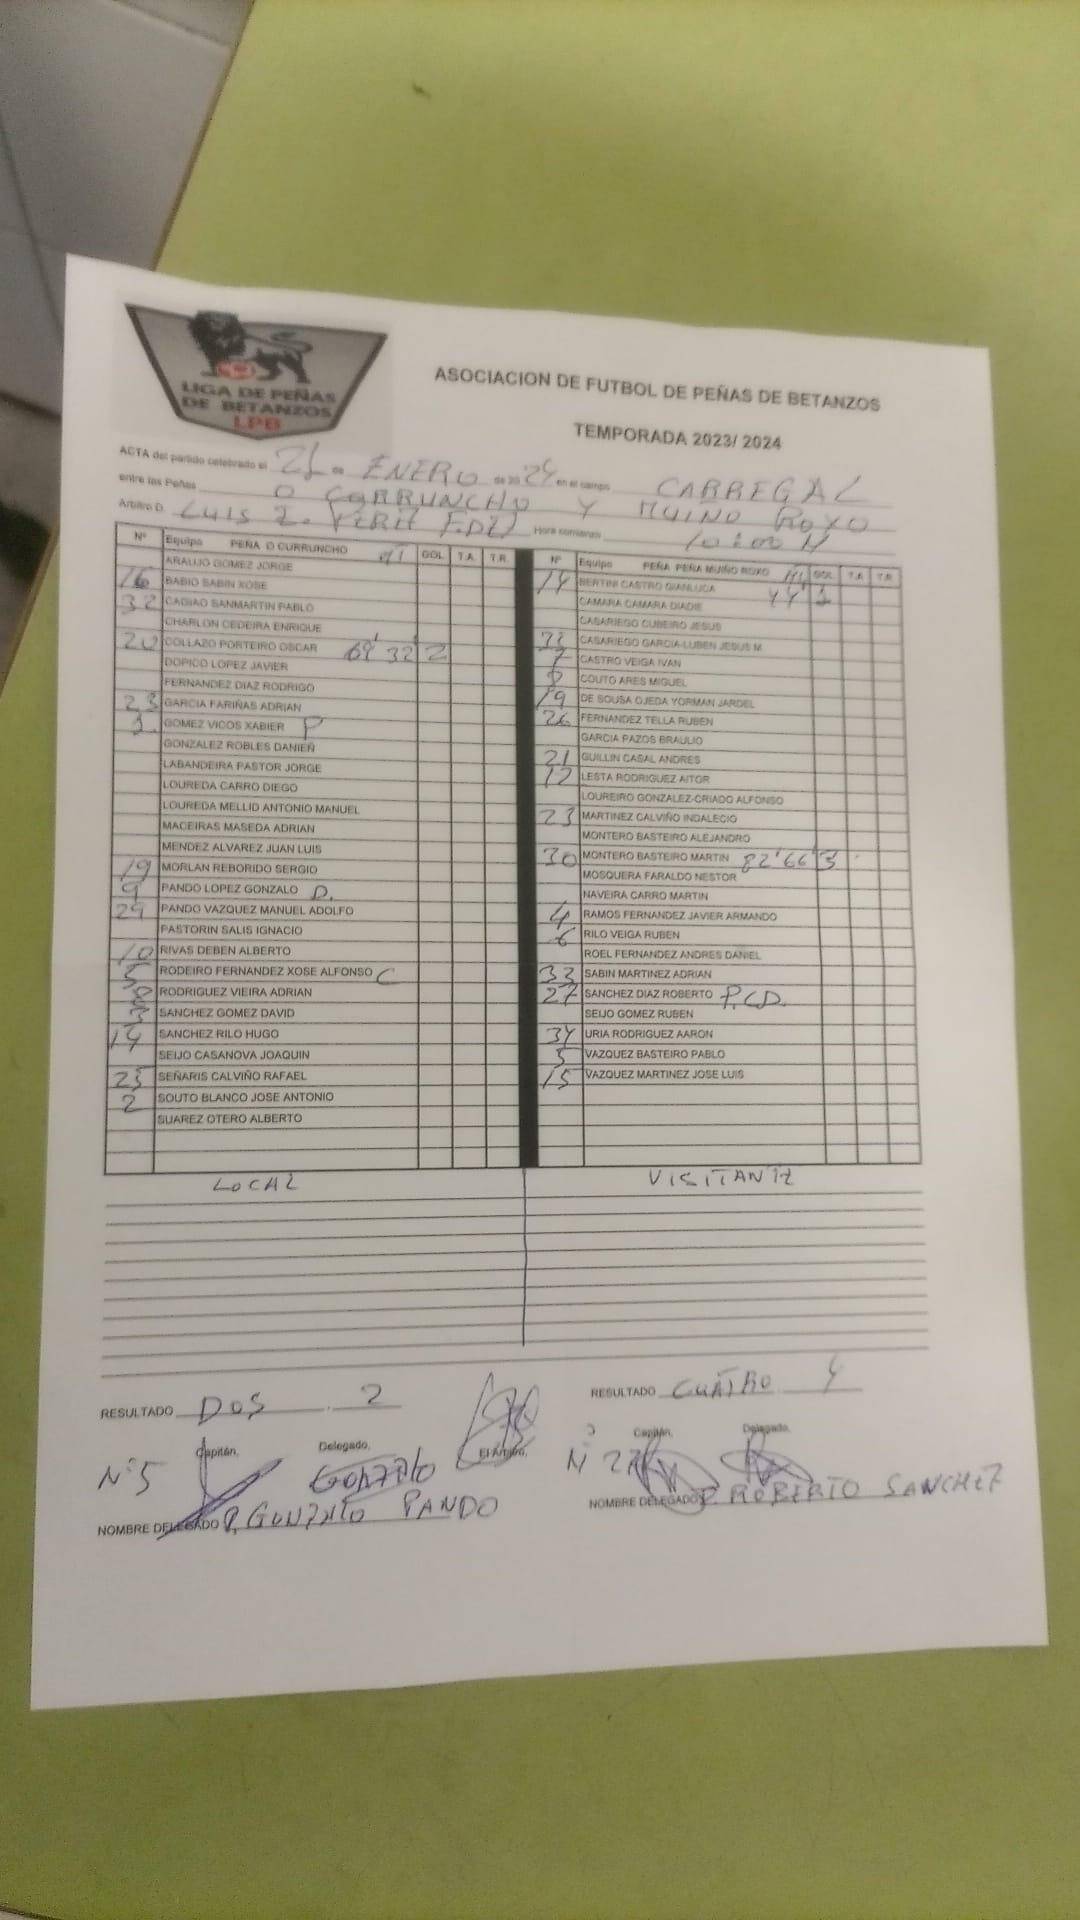 LIGA DE PEÑAS
DE BETANZOS
LPB
ASOCIACION DE FUTBOL DE PEÑAS DE BETANZOS
TEMPORADA 2023/ 2024
ACTA del partido celebrado el 21 de ENERO de 2024 en el campo CARREGAL
entre las Peñas O CORRUNCHO Y MUIÑO ROXO
Arbitro D. LUIS Hora comienzo 10:00 H
Nº Equipo PEÑA O CURRUNCHO GOL T.A. T.R.
ARAUJO GOMEZ JORGE
16 BABIO SABIN XOSE
32 CAGIAO SANMARTIN PABLO
CHARLON CEDEIRA ENRIQUE
20 COLLAZO PORTEIRO OSCAR 69' 32' 2
DOPICO LOPEZ JAVIER
FERNANDEZ DIAZ RODRIGO
23 GARCIA FARIÑAS ADRIAN
1 GOMEZ VICOS XABIER P
GONZALEZ ROBLES DANIEÑ
LABANDEIRA PASTOR JORGE
LOUREDA CARRO DIEGO
LOUREDA MELLID ANTONIO MANUEL
MACEIRAS MASEDA ADRIAN
MENDEZ ALVAREZ JUAN LUIS
19 MORLAN REBORIDO SERGIO
9 PANDO LOPEZ GONZALO D.
29 PANDO VAZQUEZ MANUEL ADOLFO
PASTORIN SALIS IGNACIO
10 RIVAS DEBEN ALBERTO
5 RODEIRO FERNANDEZ XOSE ALFONSO C
8 RODRIGUEZ VIEIRA ADRIAN
3 SANCHEZ GOMEZ DAVID
14 SANCHEZ RILO HUGO
SEIJO CASANOVA JOAQUIN
25 SEÑARIS CALVIÑO RAFAEL
2 SOUTO BLANCO JOSE ANTONIO
SUAREZ OTERO ALBERTO
Nº Equipo PEÑA PEÑA MUIÑO ROXO GOL T.A. T.R.
14 BERTINI CASTRO GIANLUCA 44' 1
CAMARA CAMARA DIADIE
CASARIEGO CUBEIRO JESUS
CASARIEGO GARCIA-LUBEN JESUS M.
7 CASTRO VEIGA IVAN
8 COUTO ARES MIGUEL
19 DE SOUSA OJEDA YORMAN JARDEL
26 FERNANDEZ TELLA RUBEN
GARCIA PAZOS BRAULIO
21 GUILLIN CASAL ANDRES
12 LESTA RODRIGUEZ AITOR
LOUREIRO GONZALEZ-CRIADO ALFONSO
23 MARTINEZ CALVIÑO INDALECIO
MONTERO BASTEIRO ALEJANDRO
30 MONTERO BASTEIRO MARTIN 82' 66' 3
MOSQUERA FARALDO NESTOR
NAVEIRA CARRO MARTIN
4 RAMOS FERNANDEZ JAVIER ARMANDO
6 RILO VEIGA RUBEN
ROEL FERNANDEZ ANDRES DANIEL
33 SABIN MARTINEZ ADRIAN
27 SANCHEZ DIAZ ROBERTO P.C.D.
SEIJO GOMEZ RUBEN
34 URIA RODRIGUEZ AARON
5 VAZQUEZ BASTEIRO PABLO
15 VAZQUEZ MARTINEZ JOSE LUIS
LOCAL VISITANTE
RESULTADO DOS 2
RESULTADO CUATRO 4
Capitán, Delegado, El Arbitro, Capitán, Delegado,
Nº5 GONZALO Nº 27
NOMBRE DELEGADO D. GONZALO PANDO
NOMBRE DELEGADO D. ROBERTO SANCHEZ